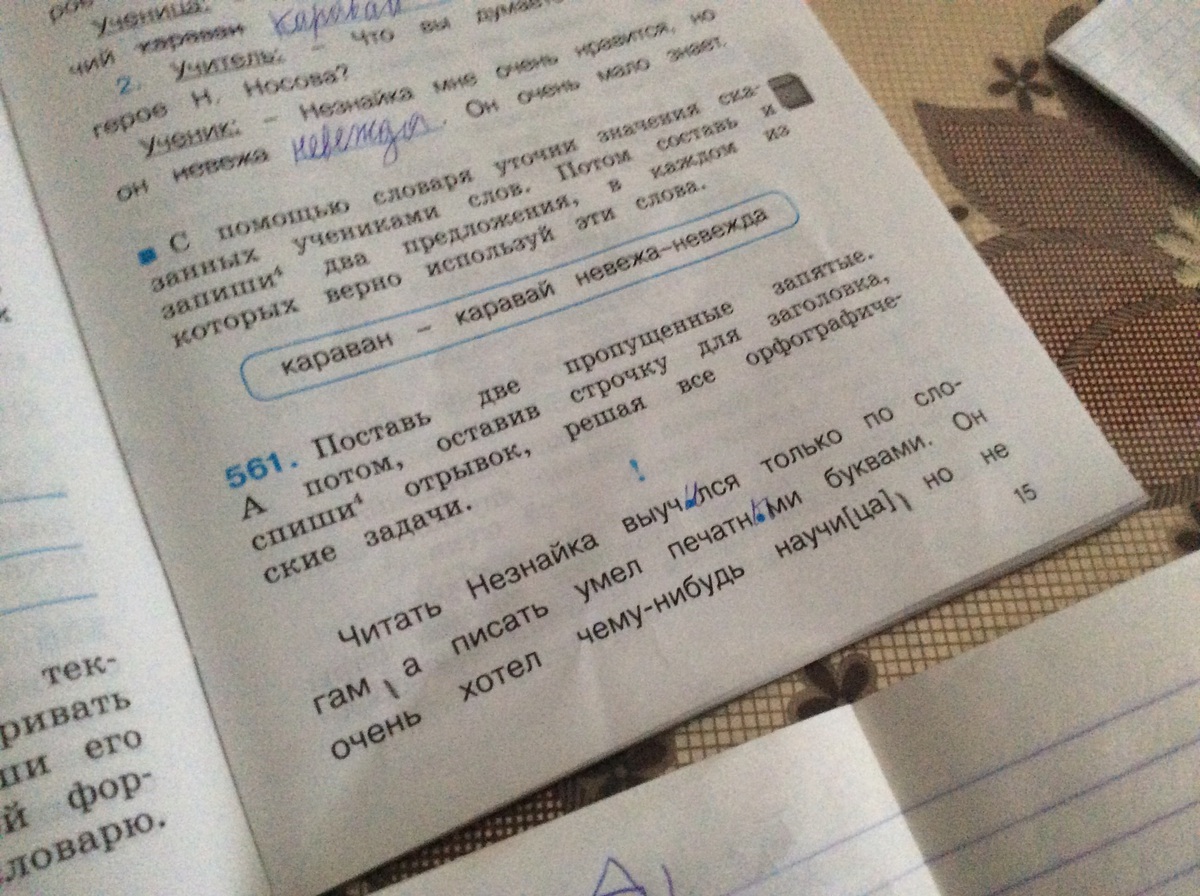 Ученица:
чий караван каравай
2. Учитель: – Что вы
герое Н. Носова?
Ученик: – Незнайка мне очень нравится, но
он невежа невежда. Он очень мало знает.
С помощью словаря уточни значения ска-
занных учениками слов. Потом составь и
запиши⁴ два предложения, в каждом из
которых верно используй эти слова.
караван – каравай невежа–невежда
561. Поставь две пропущенные запятые.
А потом, оставив строчку для заголовка,
спиши⁴ отрывок, решая все орфографиче-
ские задачи.
!
Читать Незнайка выучился только по сло-
гам, а писать умел печатными буквами. Он
очень хотел чему-нибудь научи[ца], но не
15
тек-
ривать
ши его
й фор-
ловарю.